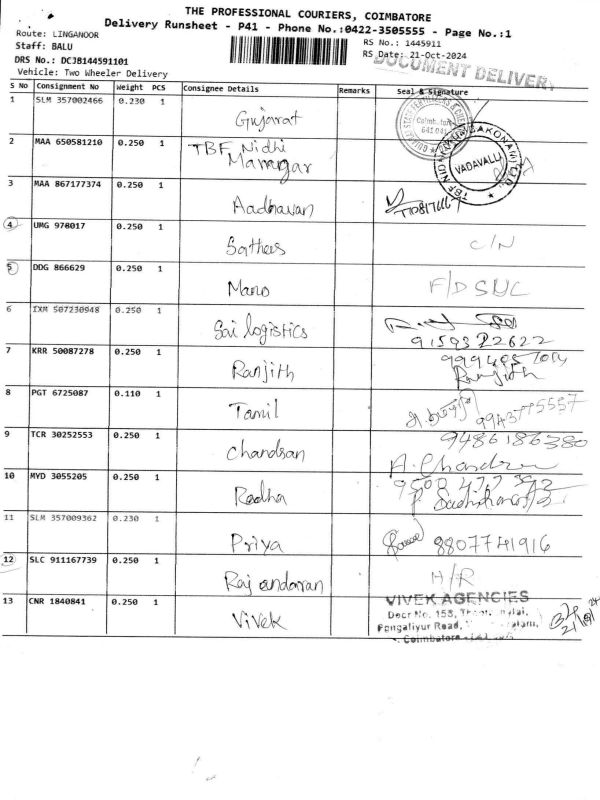 THE PROFESSIONAL COURIERS, COIMBATORE
Delivery Runsheet - P41 - Phone No.:0422-3505555 - Page No.:1
Route: LINGANOOR
Staff: BALU
DRS No.: DCJB144591101
Vehicle: Two Wheeler Delivery
RS No.: 1445911
RS Date: 21-Oct-2024
DOCUMENT DELIVERY
S No Consignment No Weight PCS Consignee Details Remarks Seal & Signature
1 SLM 357002466 0.230 1 Gujarat
Coimbatore
641 041
2 MAA 650581210 0.250 1 TBF Nidhi
VADAVALLI
3 MAA 867177374 0.250 1 Aadhavan
4 UMG 978017 0.250 1 Sathees C/N
5 DDG 866629 0.250 1 Mano F/D
6 IXM 507230948 0.250 1 Sai logistics
9159322622
7 KRR 50087278 0.250 1 Ranjith
Ranjith
8 PGT 6725087 0.110 1 Tamil
9 TCR 30252553 0.250 1 chandran 9486186380
A. Chandra
10 MYD 3055205 0.250 1 Radha
11 SLM 357009362 0.230 1 Priya 8807741916
12 SLC 911167739 0.250 1 Rajendaran H/R
13 CNR 1840841 0.250 1 Vivek
VIVEK AGENCIES
Door No. 153,
Pongaliyur Road,
Coimbatore